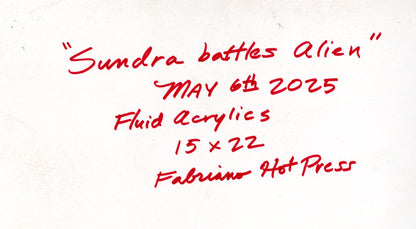 "Sundra battles Alien"
MAY 6th 2025
Fluid Acrylics
15 x 22
Fabriano Hot Press